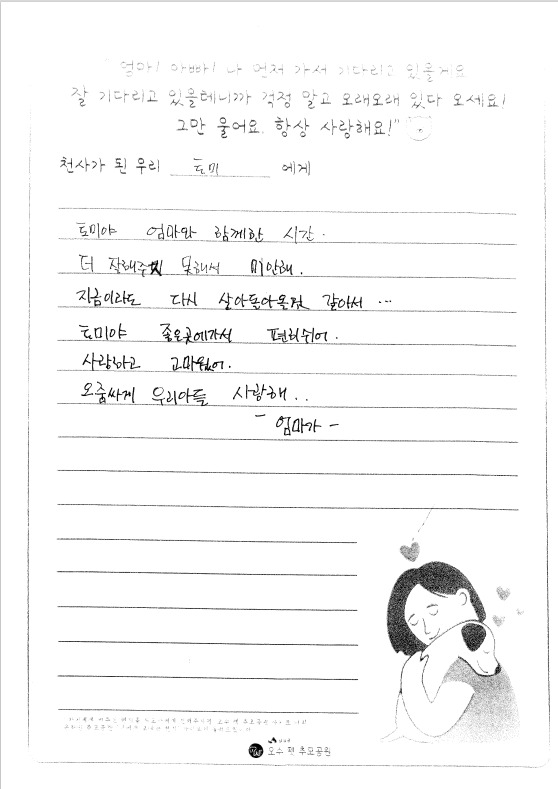 "엄마! 아빠! 나 먼저 가서 기다리고 있을게요
잘 기다리고 있을테니까 걱정 말고 오래오래 있다 오세요!
그만 울어요. 항상 사랑해요!"
천사가 된 우리 토미 에게
토미야 엄마와 함께한 시간.
더 잘해주지 못해서 미안해.
지금이라도 다시 살아돌아올것 같아서 …
토미야 좋은곳에가서 편히쉬어.
사랑하고 고마웠어.
오줌싸개 우리아들 사랑해..
- 엄마가 -
오수 펫 추모공원